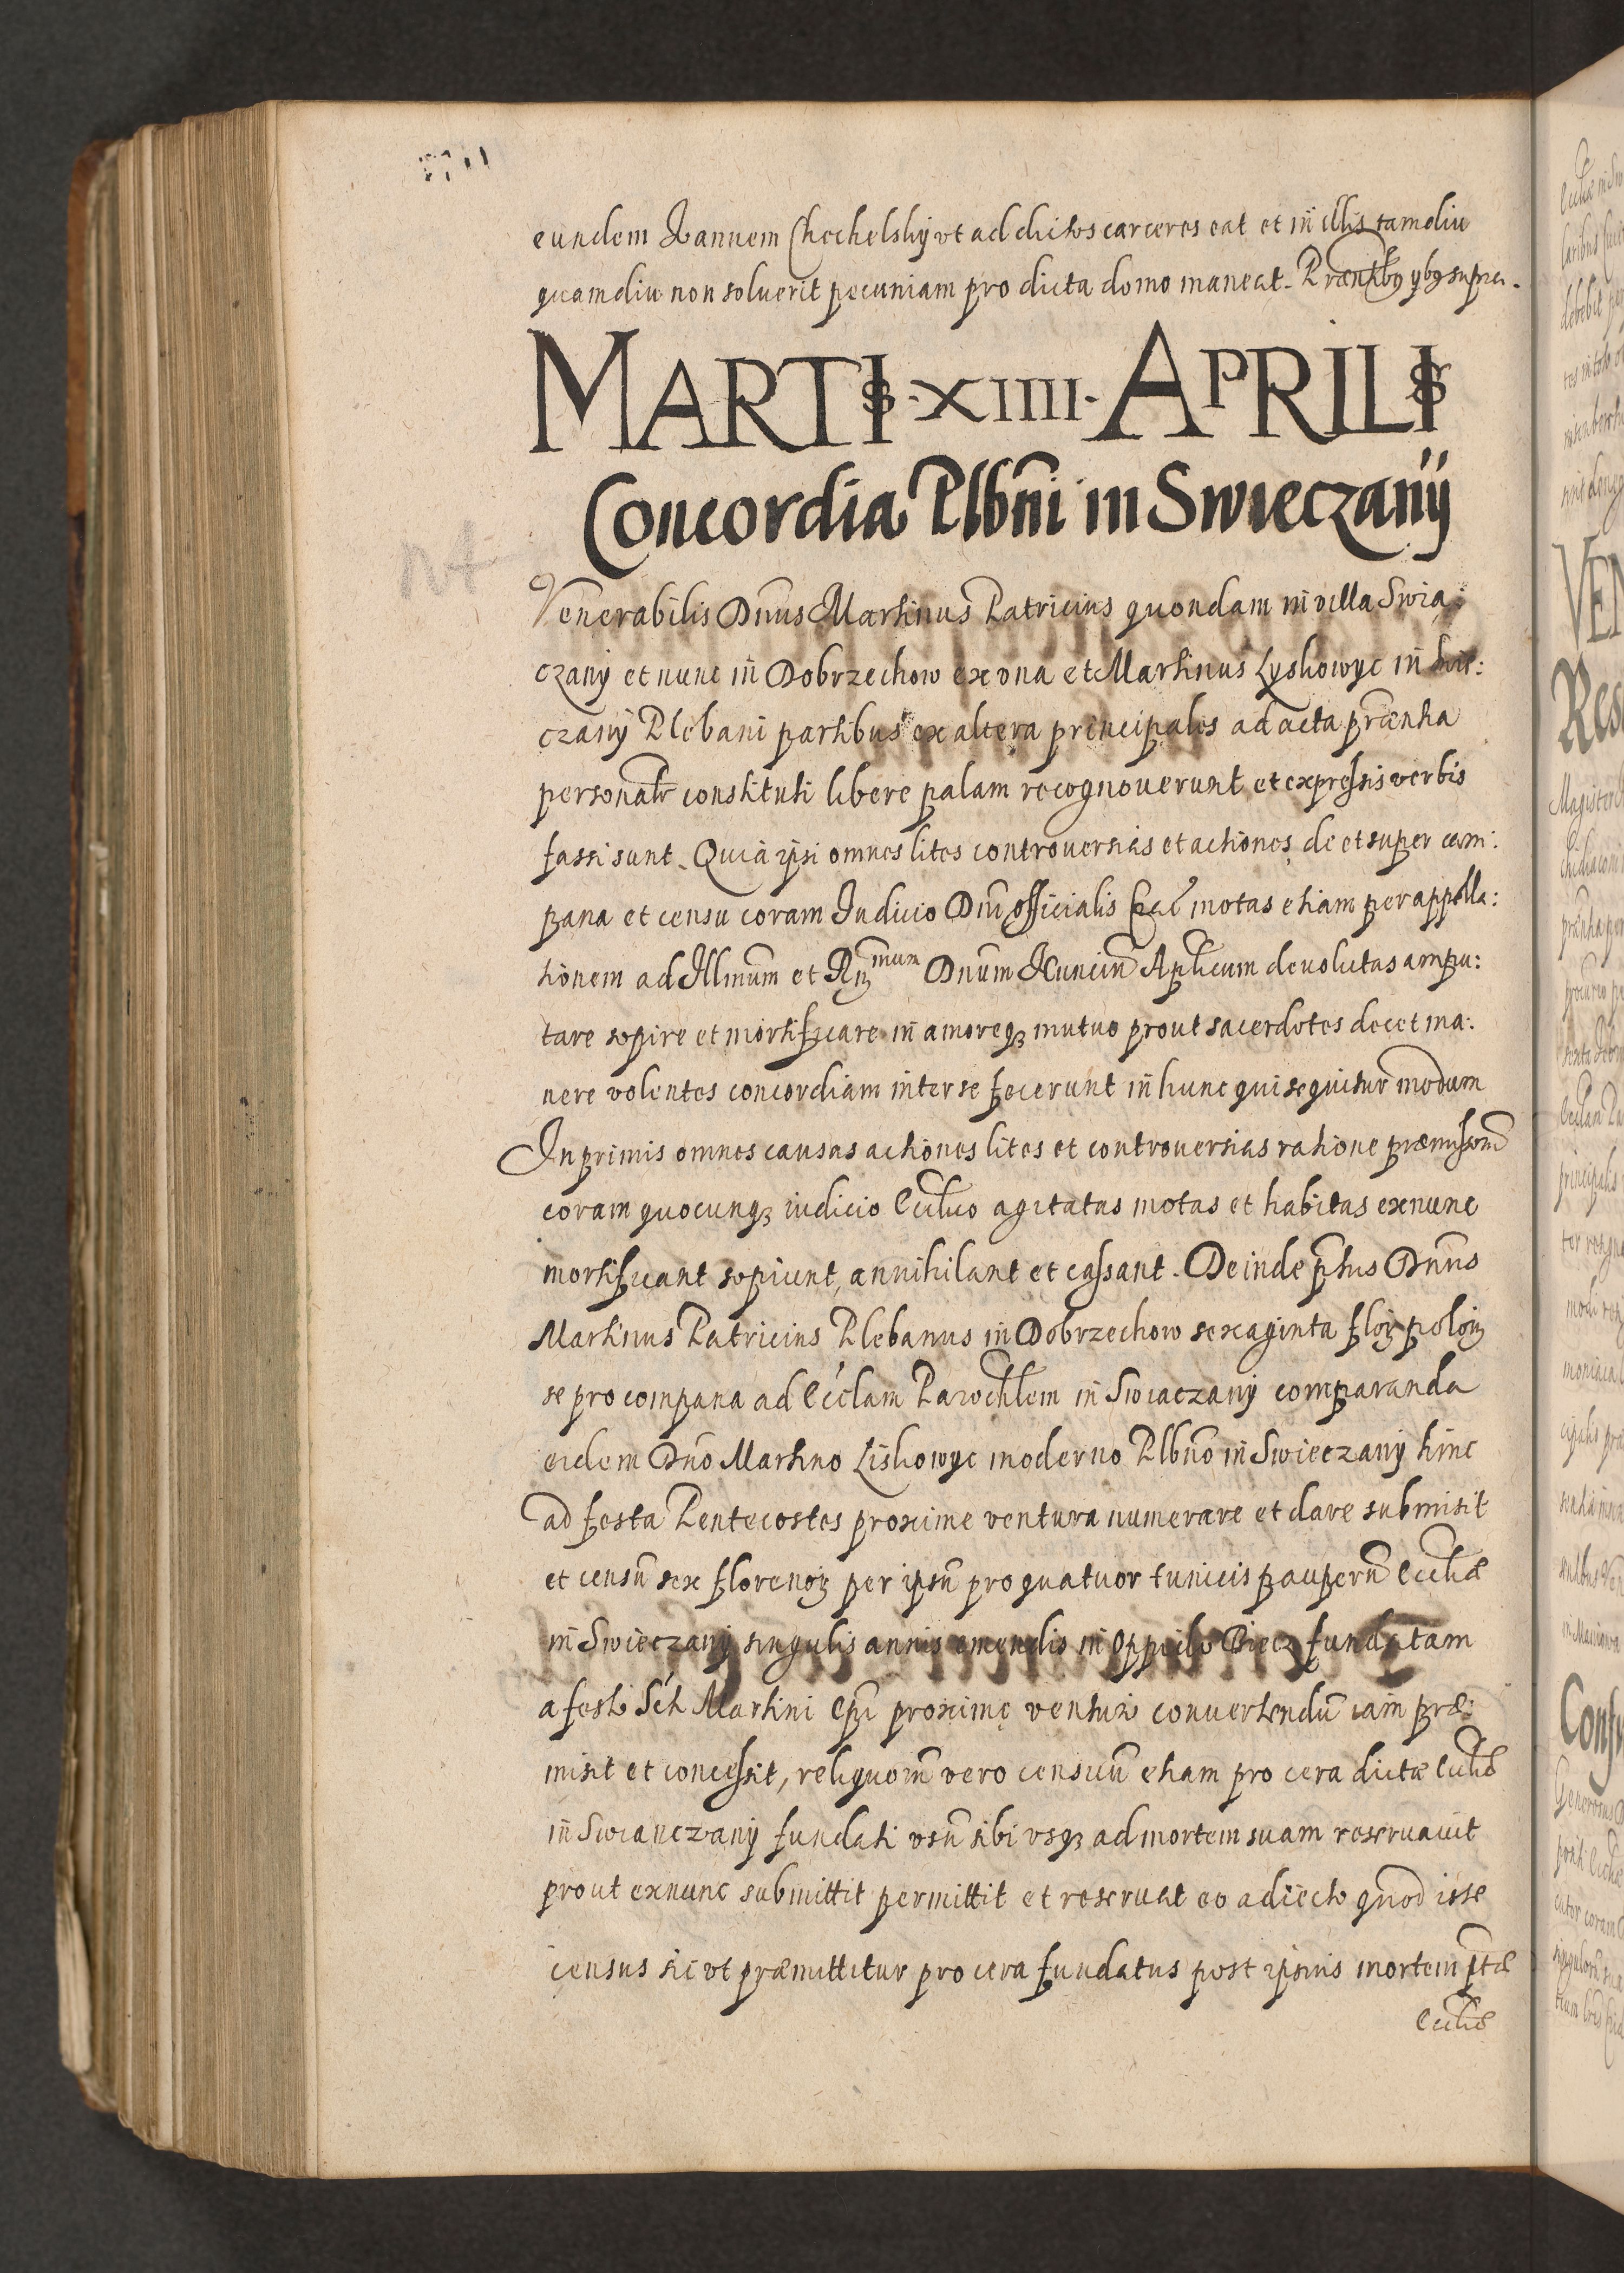 eundem Joannem Chechelskÿ vt ad dictos carceres eat et in illis tamdiu
quamdiu non soluerit pecuniam pro dicta domo maneat. Præntibꝫ qbꝫ supra.
MARTIS · XIIII · APRILIS
Concordia Plbni in Swieczanÿ
Venerabilis Dnus Martinus Patricius quondam in villa Swia:
czanÿ et nunc in Dobrzechow ex vna et Martinus Lyskowyc in Swie:
czanÿ Plebani partibus ex altera principales ad acta præntia
personalr constituti libere palam recognouerunt et expressis verbis
fassi sunt. Quia ipsi omnes lites controuersias et actiones de et super cam:
pana et censu coram Judicio Dni officialis Crac motas etiam per appella:
tionem ad Illmum et Rꝫmum Dnum Nuncium Aplicum deuolutas ampu:
tare sopire et mortificare in amoreqꝫ mutuo prout sacerdotes decet ma:
nere volentes concordiam inter se fecerunt in hunc qui sequitur modum
Inprimis omnes causas actiones lites et controuersias ratione præmissorum
coram quocunqꝫ iudicio Ecclico agitatas motas et habitas exnunc
mortificant sopiunt, annihilant et cassant. Deinde ptus Dnus
Martinus Patricius Plebanus in Dobrzechow sexaginta flor polon
se pro compana ad Ecclam Parochlem in Swiaczanÿ comparanda
eidem Dno Martino Liskowyc moderno Plbno in Swieczanÿ hinc
ad festa Pentecostes proxime ventura numerare et dare submisit
et censu sex florenoꝝ per ipsu pro quatuor tunicis pauperu Eccliæ
in Swieczanÿ singulis annis emendis in Oppido Biecz fundatam
a festo Scti Martini Epi proxime venturo conuertendu iam præ:
misit et concessit, reliquorum vero censuum etiam pro cera dictæ Eccliæ
in Swianczanÿ fundati vsu sibi vsqꝫ ad mortem suam reseruauit
prout exnunc submittit permittit et reseruat eo adiecto quod isse
census sic vt præmittitur pro cera fundatus post ipsius mortem ptæ
Eccliæ